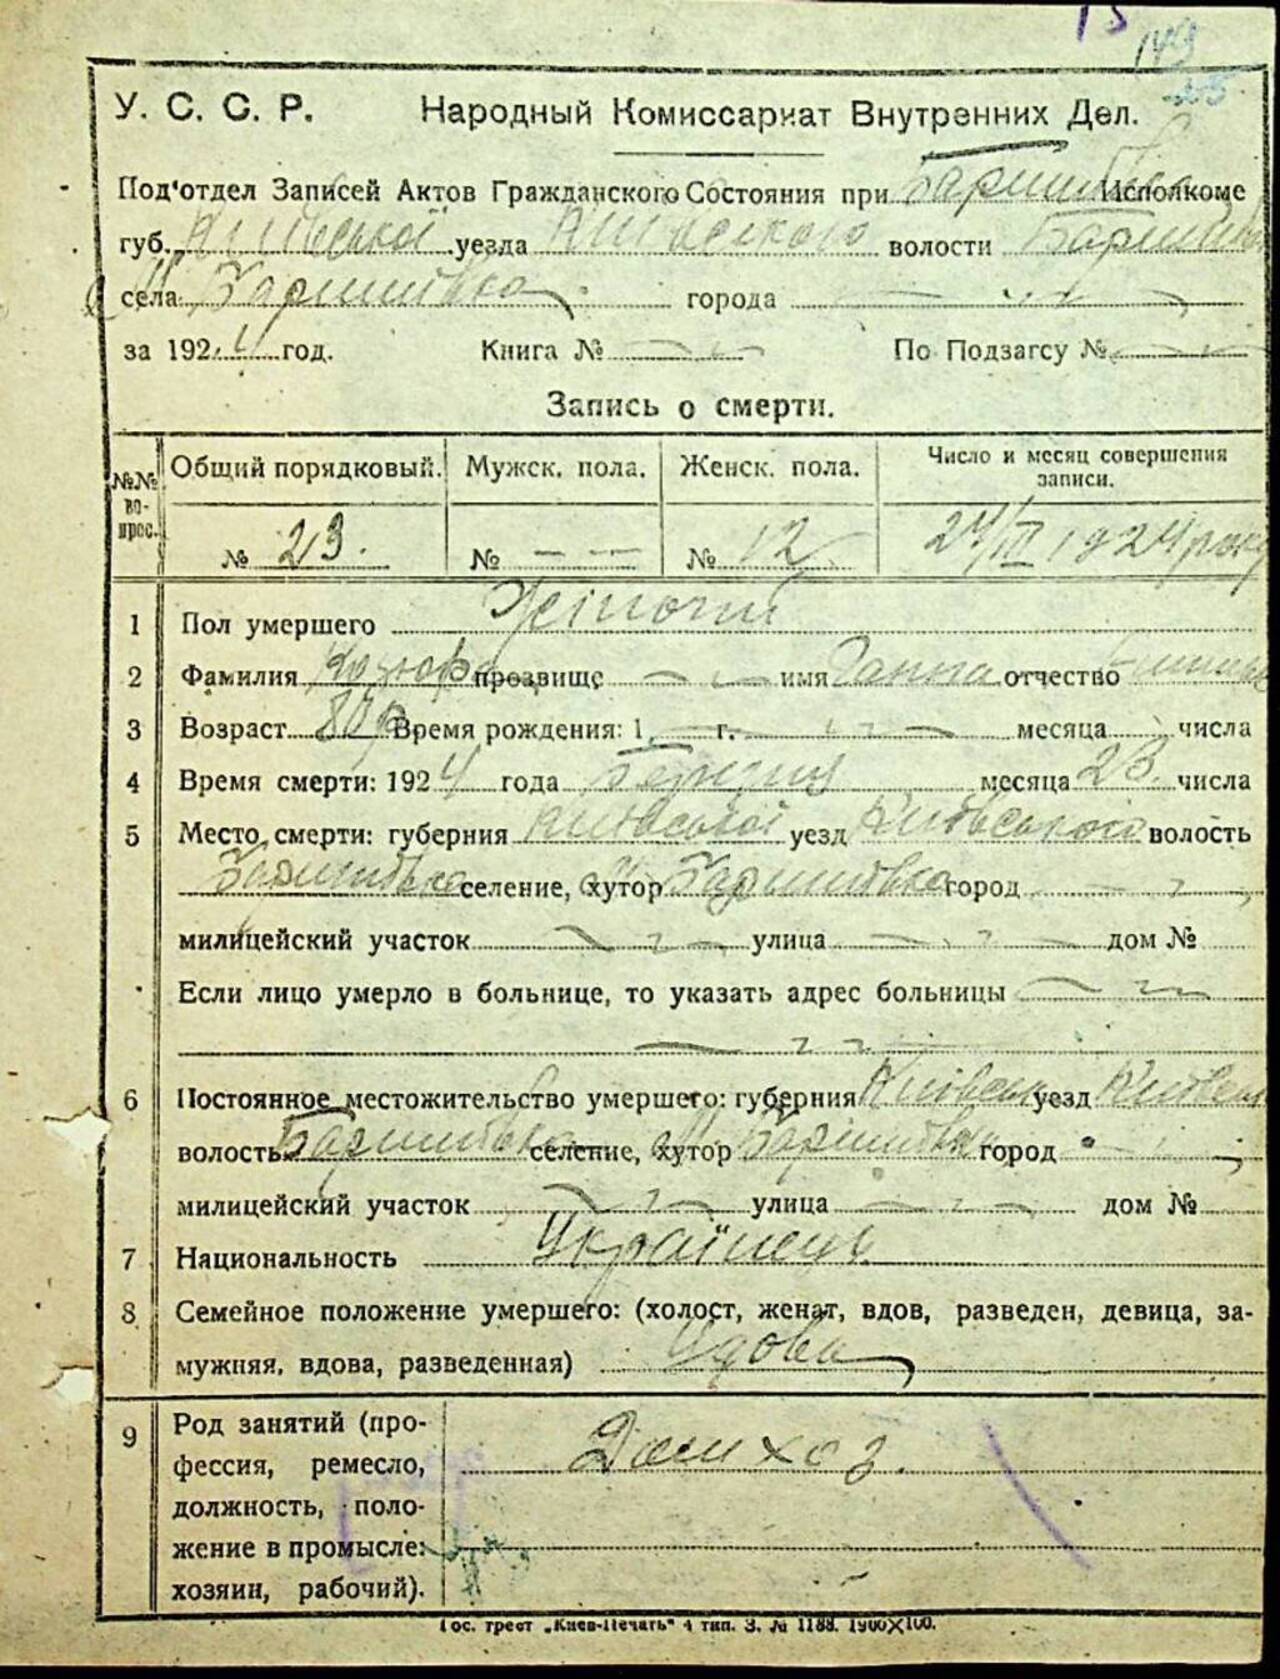 15
149
У. С. С. Р. Народный Комиссариат Внутренних Дел.
Под'отдел Записей Актов Гражданского Состояния при Исполкоме
губ. Київської уезда Київского волости
села м. Баришівка города
за 1924 год. Книга № По Подзагсу №
Запись о смерти.
№№ вопрос. Общий порядковый. Мужск. пола. Женск. пола. Число и месяц совершения записи.
№ 23. № — — № 12 24/III 1924 року
1 Пол умершего Жіночий
2 Фамилия прозвище имя Ганна отчество
3 Возраст 80 р. Время рождения: 1 г. месяца числа
4 Время смерти: 1924 года березня месяца 23. числа
5 Место смерти: губерния Київської уезд Київського волость
Баришівка селение, хутор м. Баришівка город
милицейский участок улица дом №
Если лицо умерло в больнице, то указать адрес больницы
6 Постоянное местожительство умершего: губерния Київськ уезд Київськ
волость Баришівка селение, хутор м. Баришівка город
милицейский участок улица дом №
7 Национальность Українець
8 Семейное положение умершего: (холост, женат, вдов, разведен, девица, за-
мужняя, вдова, разведенная) Удова
9 Род занятий (про-
фессия, ремесло, Домхоз.
должность, поло-
жение в промысле:
хозяин, рабочий).
Гос. трест „Киев-Печать" 4 тип. З. № 1188. 1900X100.